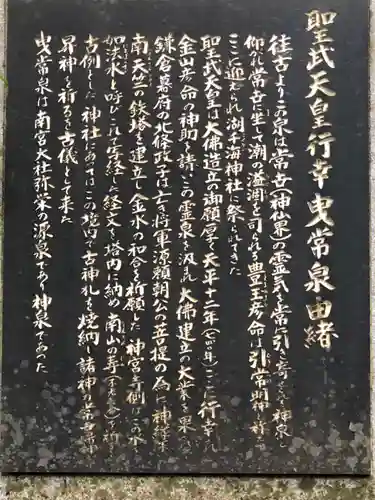 聖武天皇行幸曳常泉由緒
往古よりこの泉は常古(神仙界)の霊気を常に引き寄せる神泉と
仰がれ常古に坐して潮の溢涸を司られる豊玉彦命は引常明神と称え
ここに迎えられ湖千海神社に祭られてきた
聖武天皇は大佛造立の御願厚く天平十二年(七四〇年)ここに行幸され
金山彦命の神助を請いこの霊泉を汲まれ大佛建立の大業を果
鎌倉幕府の北條政子は亡き将軍源頼朝公の菩提の為に神
南天竺の鉄塔を建立し金水の和合を祈願した神宮寺側はこの水を
如法水と呼びこれで写経した経文を塔内に納め南山の寺
古例とした神社にあってはこの境内で古神札を焼納し諸神の常古
昇神を祈る古儀として来た
曳常泉は南宮大社弥栄の源泉であり神泉であった